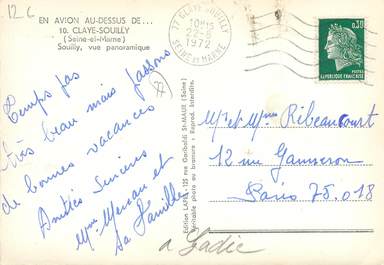 12 C
EN AVION AU-DESSUS DE...
10. CLAYE-SOUILLY
(Seine-et-Marne)
Souilly, vue panoramique
77 CLAYE-SOUILLY
22-8
1972
SEINE ET MARNE
0,30
POSTES
REPUBLIQUE FRANCAISE
Temps pas
très beau mais passons
de bonnes vacances
Amitiés Sincères
Mme et
sa famille
Edition LAPIE - 125 rue Garibaldi St-MAUR (Seine)
Véritable photo au bromure - Reprod. interdite.
Mr et Mme Ribeaucourt
12 rue
Paris 75.018
a